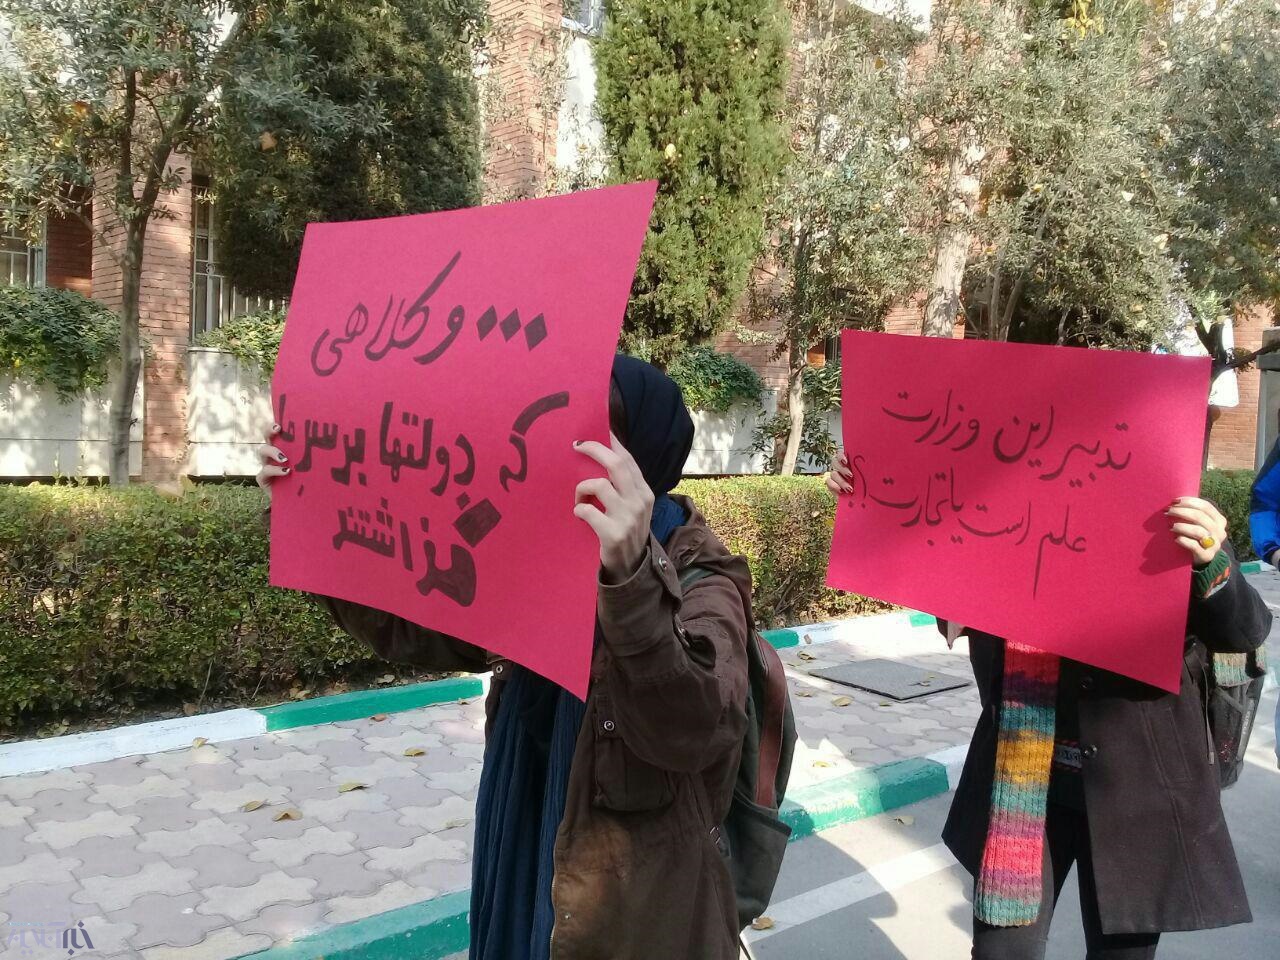 ... و کلاهی
که دولتها بر سر ما
گذاشتند
تدبیر این وزارت
علم است یا تجارت؟!